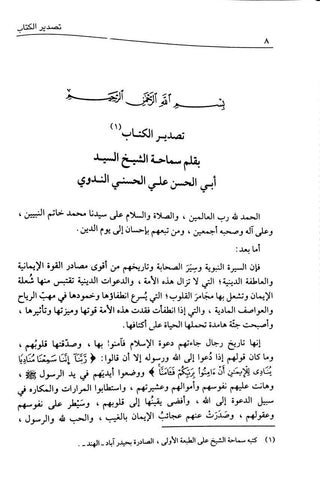 تصدير الكتاب
٨
بسم الله الرحمن الرحيم
تصدير الكتاب (١)
بقلم سماحة الشيخ السيد
أبي الحسن علي الحسني الندوي
الحمد لله رب العالمين، والصلاة والسلام على سيدنا محمد خاتم النبيين،
وعلى آله وصحبه أجمعين، ومن تبعهم بإحسان إلى يوم الدين.
أما بعد:
فإن السيرة النبوية وسِيَر الصحابة وتاريخهم من أقوى مصادر القوة الإيمانية
والعاطفة الدينية؛ التي لا تزال هذه الأمة، والدعوات الدينية تقتبس منها شُعلة
الإيمان وتشعل بها مَجَامِرَ القلوب؛ التي يُسرع انطفاؤها وخمودها في مهبّ الرياح
والعواصف المادية، والتي إذا انطفأت فقدت هذه الأمة قوتها وميزتها وتأثيرها،
وأصبحت جثّة هامدة تحملها الحياة على أكتافها.
إنها تاريخ رجال جاءتهم دعوة الإسلام فآمنوا بها، وصدّقتها قلوبهم،
وما كان قولهم إذا دُعوا إلى الله ورسوله إلا أن قالوا: ﴿رَبَّنَا إِنَّنَا سَمِعْنَا مُنَادِيًا
يُنَادِي لِلْإِيمَٰنِ أَنْ ءَامِنُوا۟ بِرَبِّكُمْ فَـَٔامَنَّا﴾ ووضعوا أيديهم في يد الرسول ﷺ،
وهانت عليهم نفوسهم وأموالهم وعشيرتهم، واستطابوا المرارات والمكاره في
سبيل الدعوة إلى الله، وأفضى يقينُها إلى قلوبهم، وسَيْطر على نفوسهم
وعقولهم، وصَدَرَتْ عنهم عجائبُ الإيمان بالغيب، والحب لله والرسول،
(١) كتبه سماحة الشيخ على الطبعة الأولى، الصادرة بحيدر آباد - الهند -.